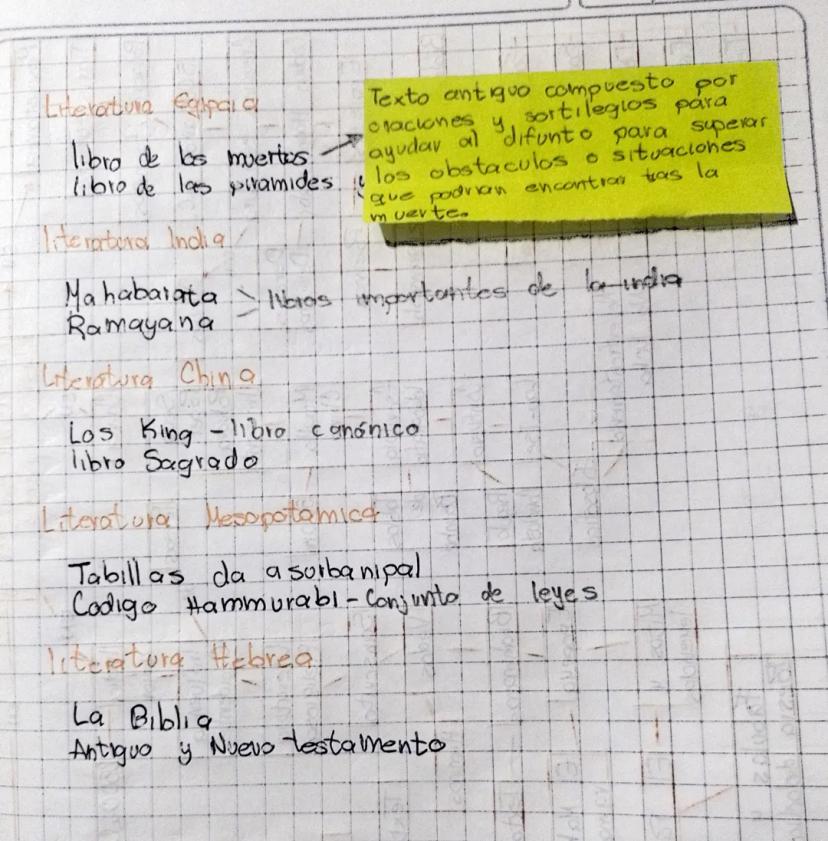 Literatura Egipcia
libro de los muertos
libro de las piramides y
Texto antiguo compuesto por
oraciones y sortilegios para
ayudar al difunto para superar
los obstaculos o situaciones
que podrian encontrar tas la
muerte.
literatura India
Mahabarata
Ramayana
libros importantes de la india
Literatura China
Los King - libro canónico
libro Sagrado
Literatura Mesopotamica
Tabillas da asurbanipal
Codigo Hammurabi - Conjunto de leyes
literatura Hebrea
La Biblia
Antiguo y Nuevo testamento